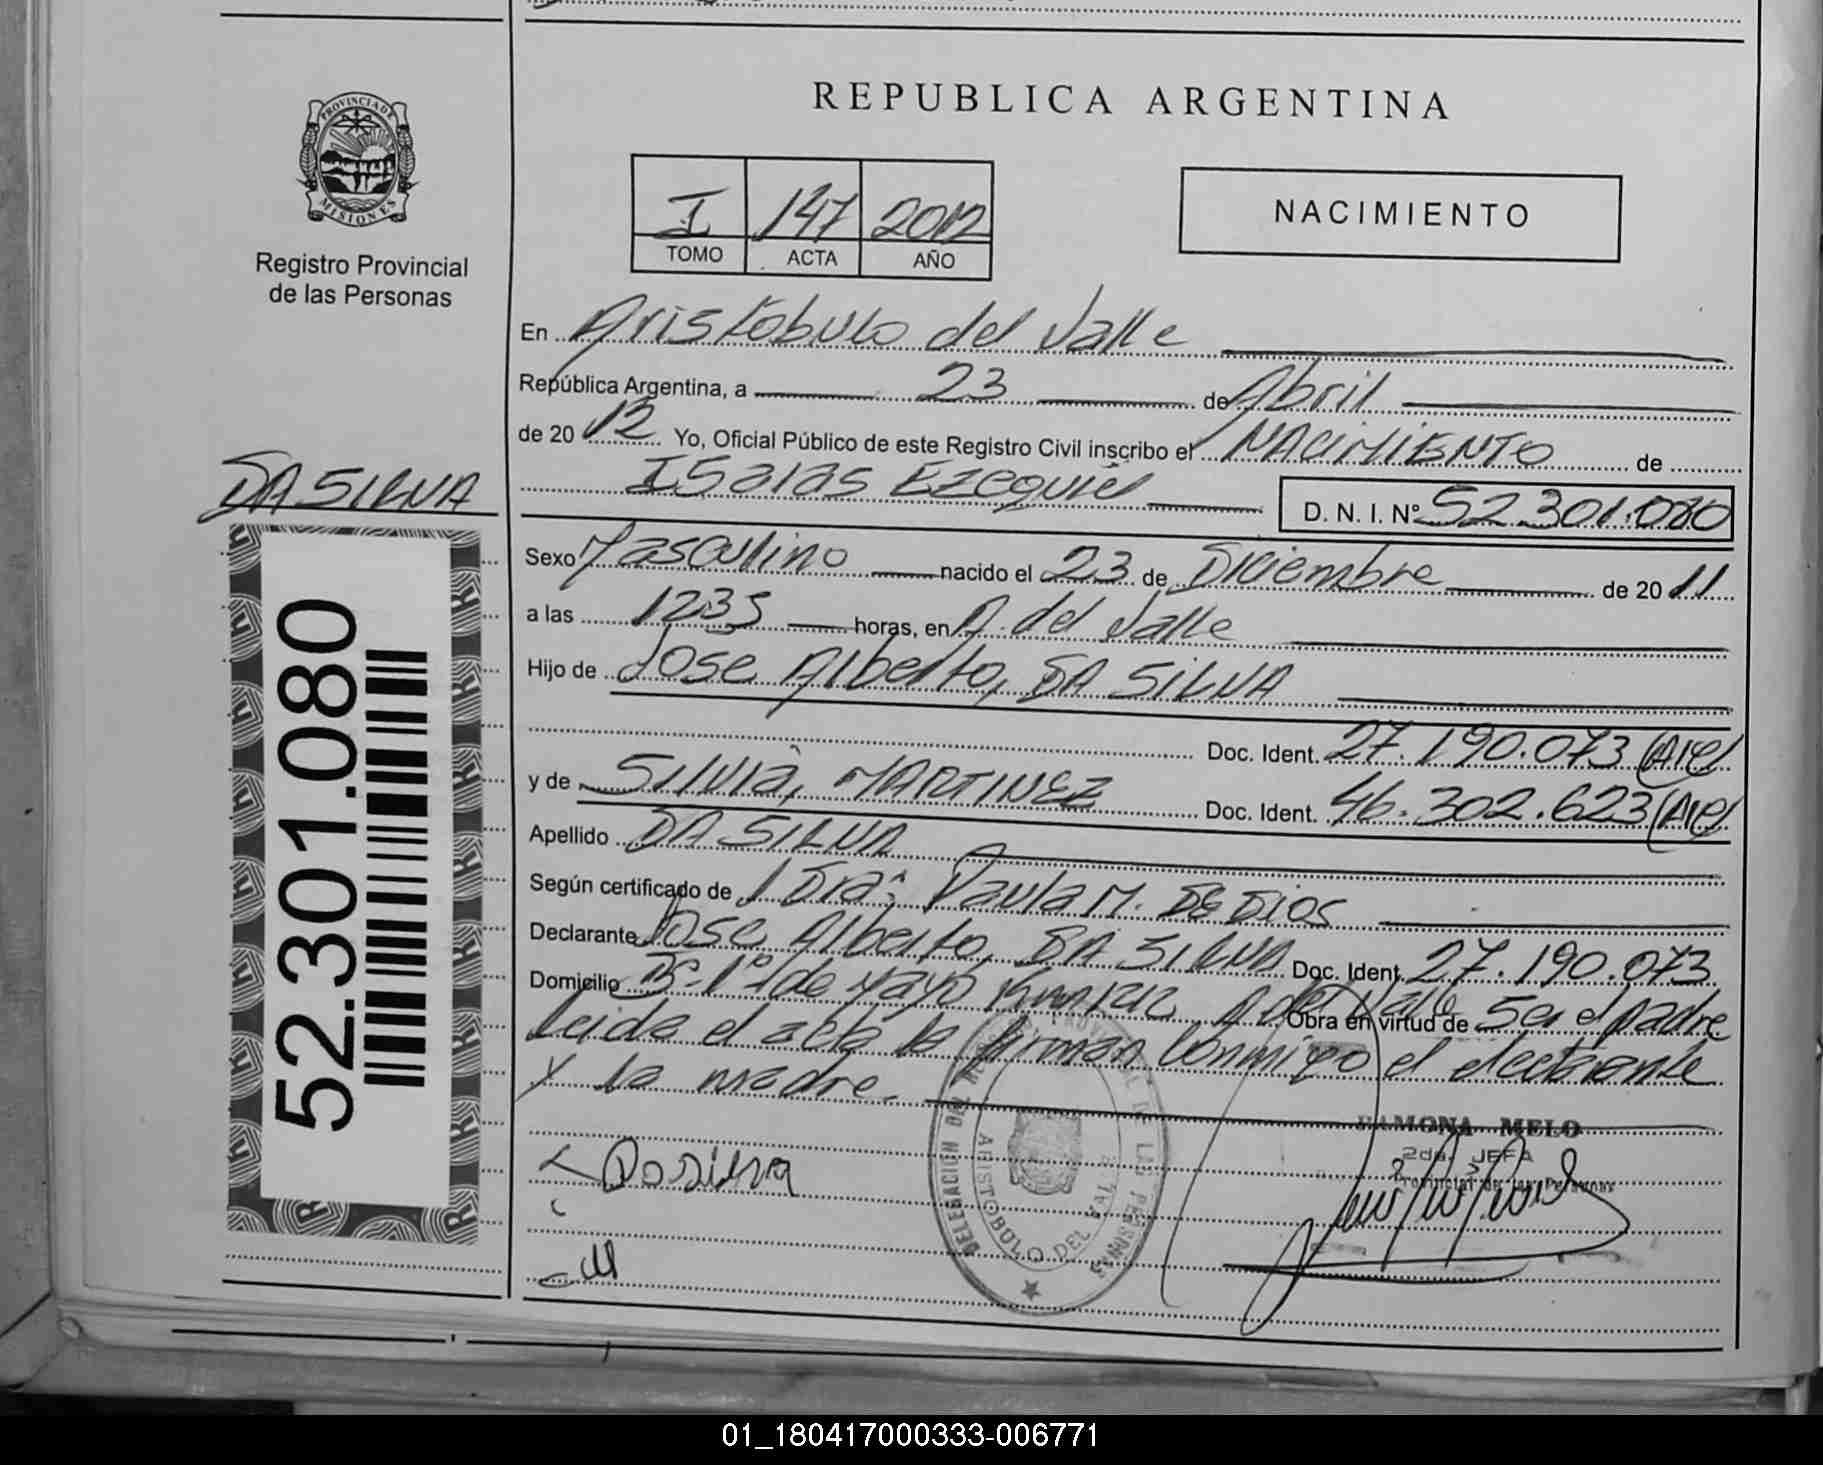 REPUBLICA ARGENTINA
PROVINCIA DE MISIONES
Registro Provincial
de las Personas
I 147 2012
TOMO ACTA AÑO
NACIMIENTO
En Aristóbulo del Valle
República Argentina, a 23 de Abril
de 20 12 Yo, Oficial Público de este Registro Civil inscribo el NACIMIENTO de
Isaias Ezequiel D. N. I. Nº 52.301.080
DA SILVA
52.301.080
Sexo Masculino nacido el 23 de Diciembre de 20 11
a las 1235 horas, en A. del Valle
Hijo de Jose Alberto, DA SILVA
Doc. Ident. 27.190.073 (Arg)
y de Silvia, MARTINEZ Doc. Ident. 46.302.623 (Arg)
Apellido DA SILVA
Según certificado de Dra: Paula M. DE DIOS
Declarante Jose Alberto, DA SILVA Doc. Ident. 27.190.073
Domicilio Bº 1º de Mayo A del Valle Obra en virtud de Ser el padre
Leida el acta la firman conmigo el declarante
y la madre.
DELEGACION DEL REGISTRO PROVINCIAL DE LAS PERSONAS
ARISTOBULO DEL VALLE
RAMONA MELO
2da. JEFA
Provincial de las Personas
Da silva
01_180417000333-006771